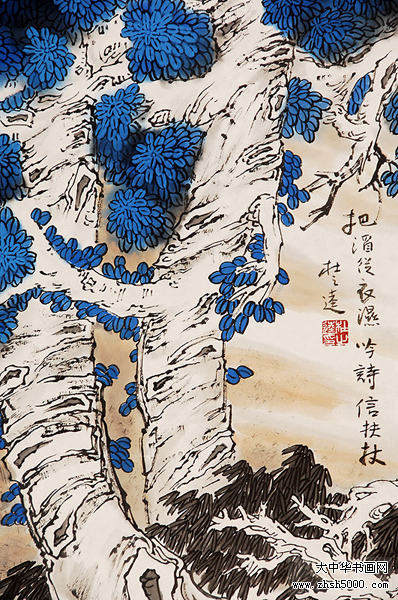 把酒從衣濕吟詩信扶杖
杜之逵
大中华书画网
www.zhsh5000.com